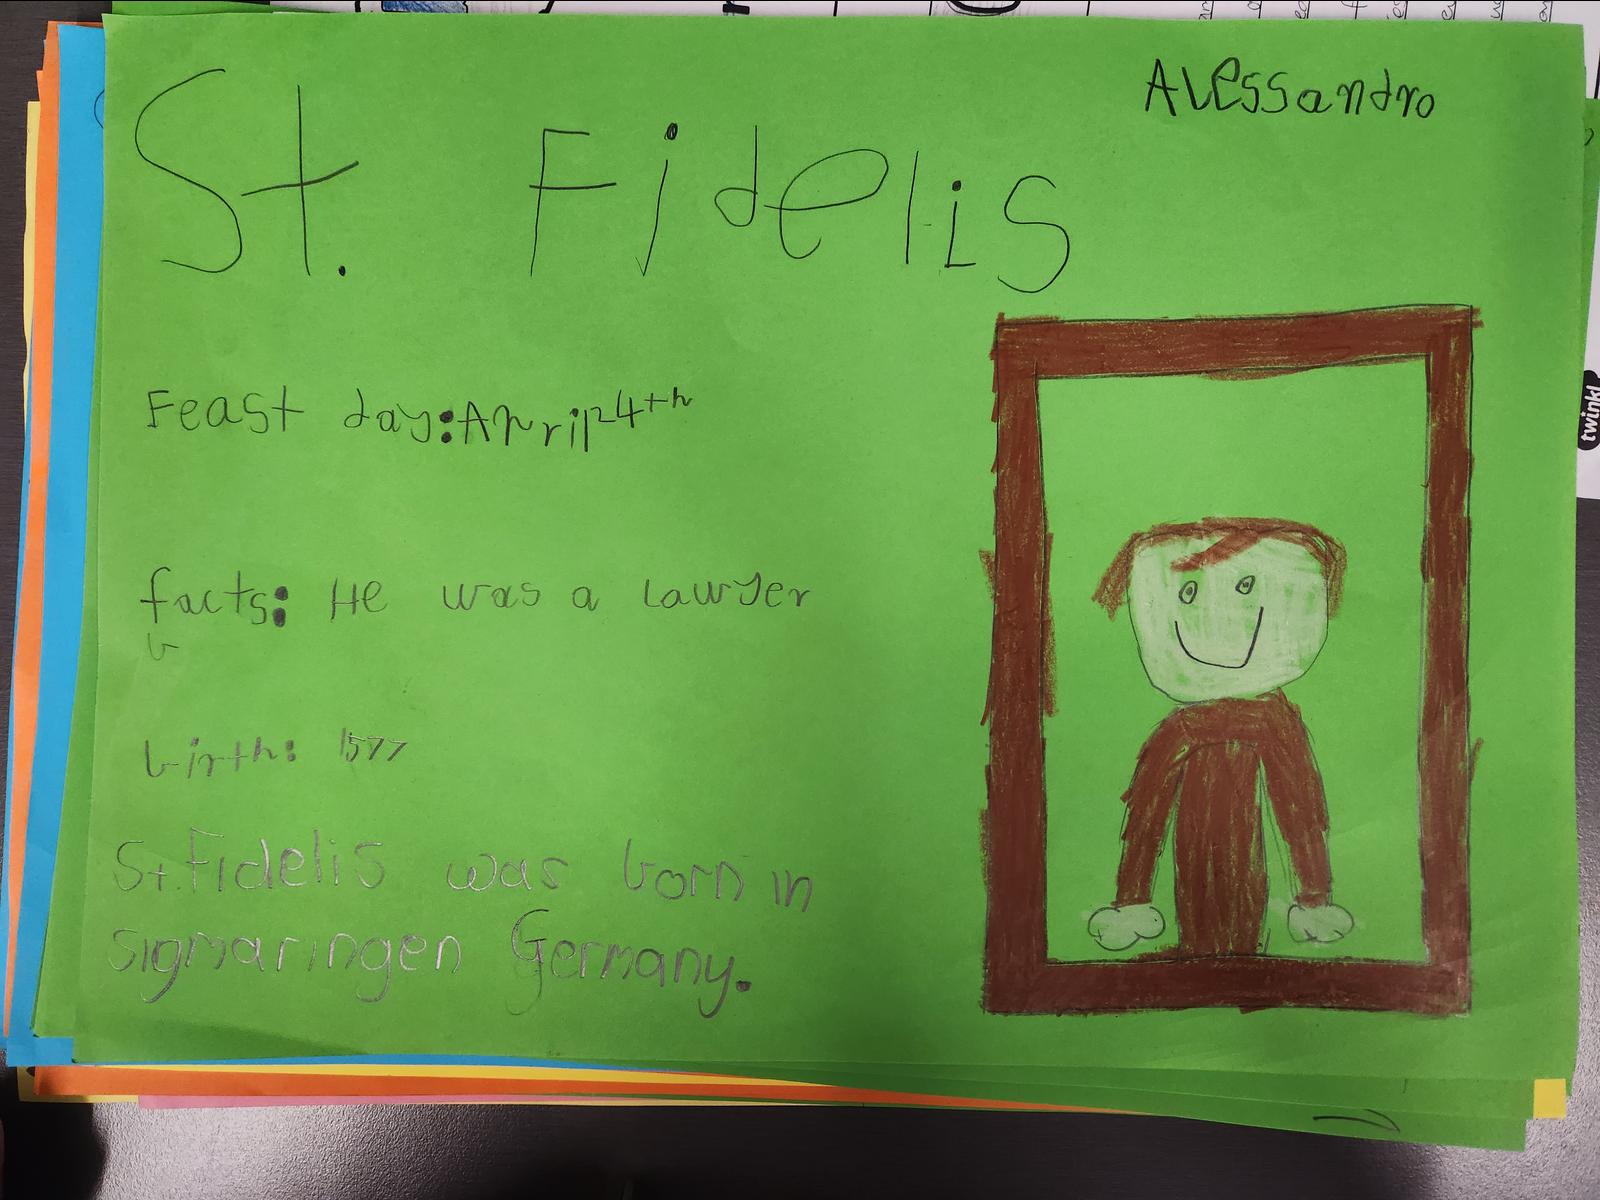 Alessandro
St. Fidelis
Feast day: April 24th
facts: He was a lawyer
b
birth: 1577
St. Fidelis was born in
sigmaringen Germany.
twinkl